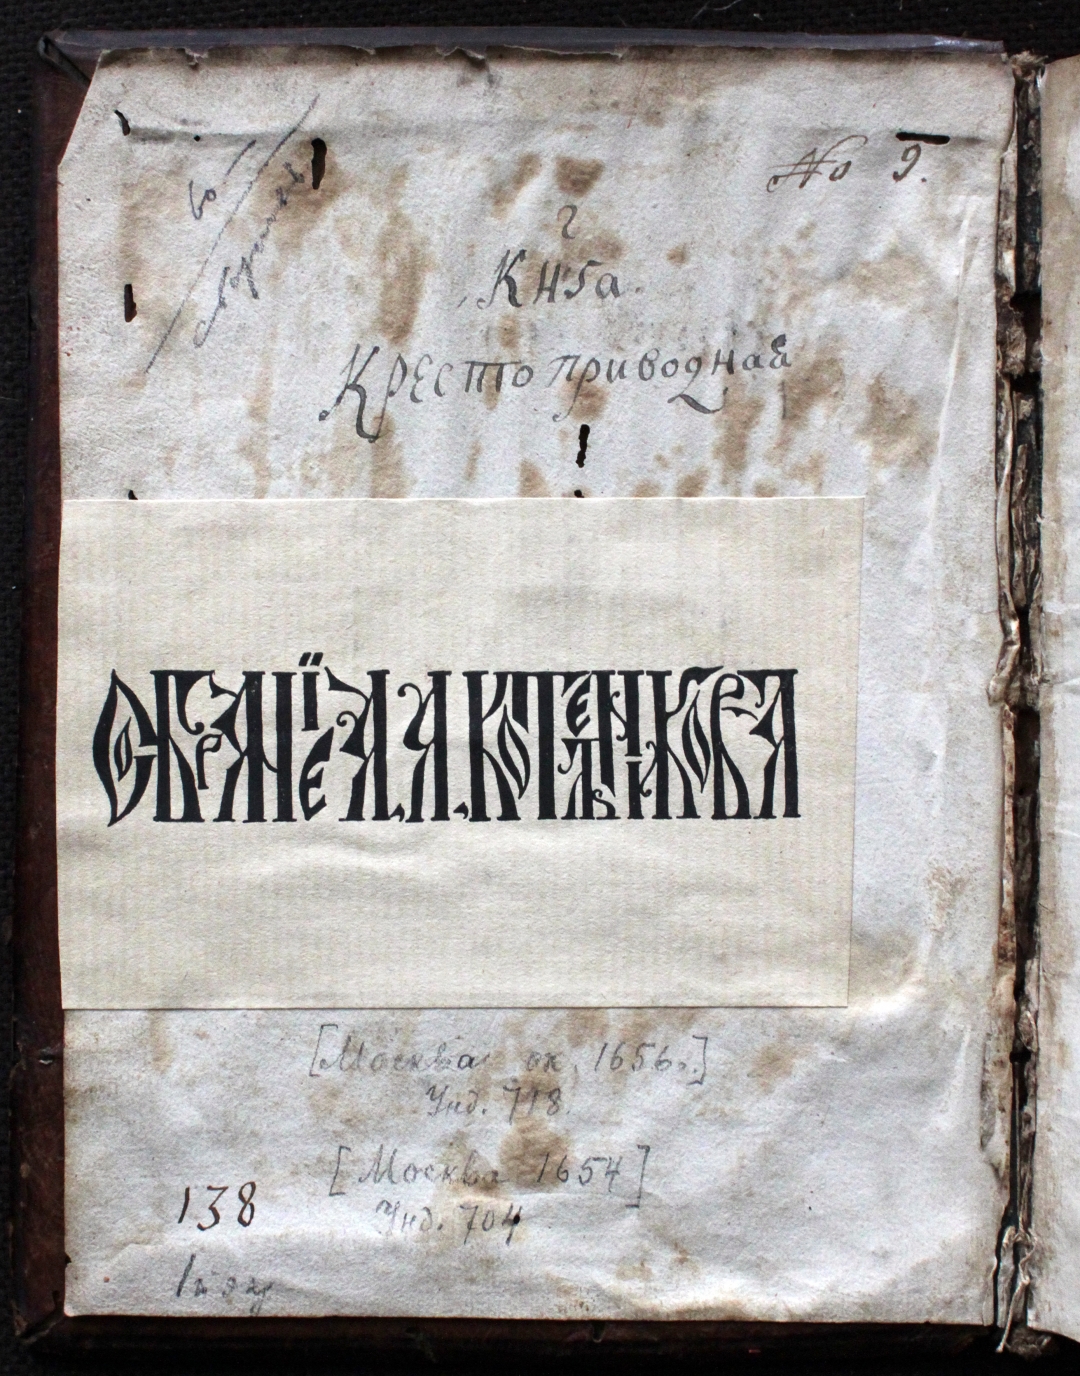 No 9.
во
г
Книга.
Крестоприводная
СОБРАНЇЕ А.А. КОТЕЛЬНІКОВА
[Москва ок. 1656г.]
Унд. 718.
[Москва 1654]
Унд. 704
138